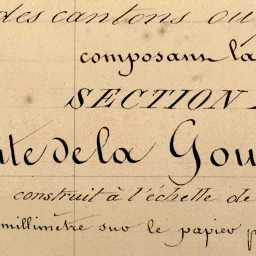 des cantons ou
composant la
SECTION
te de la Gou
construit à l'échelle de
millimètre sur le papier p